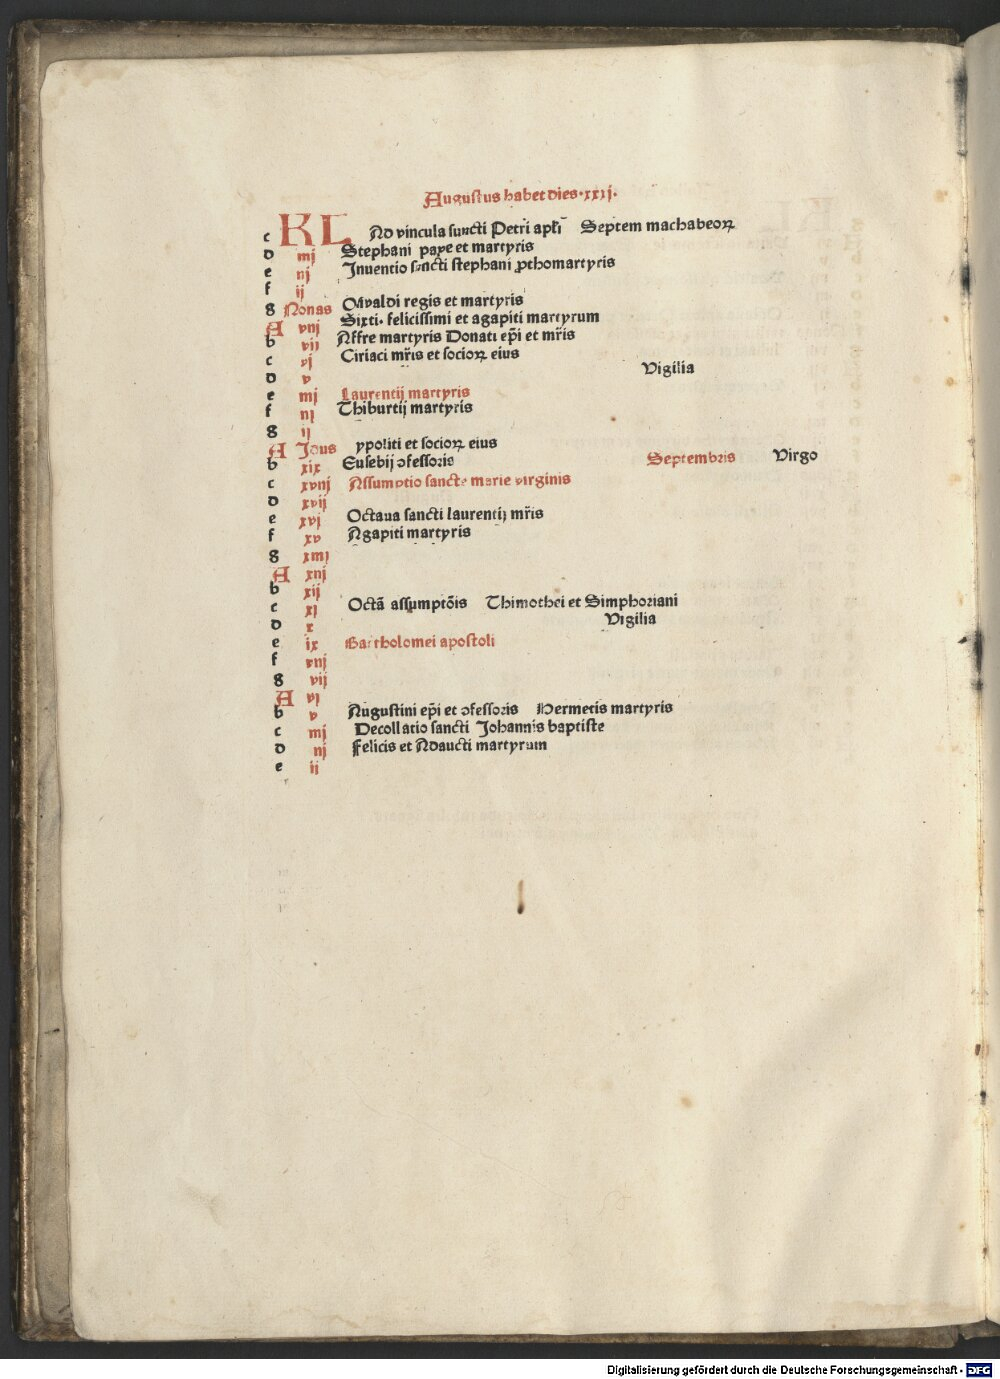 Augustus habet dies·xxxj·
c KL Ad vincula sancti Petri apl̃i Septem machabeoꝝ
d iiij Stephani pape et martyris
e iij Inuentio sancti stephani ꝓthomartyris
f ij
g Nonas Oswaldi regis et martyris
A viij Sixti· felicissimi et agapiti martyrum
b vij Affre martyris Donati ep̃i et mr̃is
c vj Ciriaci mr̃is et socioꝝ eius
d v Vigilia
e iiij Laurentij martyris
f iij Thiburtij martyris
g ij
A Idus ypoliti et socioꝝ eius
b xix Eusebij ɔfessoris Septembris Virgo
c xviij Assumptio sancte marie virginis
d xvij
e xvj Octaua sancti laurentij mr̃is
f xv Agapiti martyris
g xiiij
A xiij
b xij
c xj Octã assumptõis Thimothei et Simphoriani
d x Vigilia
e ix Bartholomei apostoli
f viij
g vij
A vj
b v Augustini ep̃i et ɔfessoris Hermetis martyris
c iiij Decollatio sancti Johannis baptiste
d iij Felicis et Adaucti martyrum
e ij
Digitalisierung gefördert durch die Deutsche Forschungsgemeinschaft - DFG